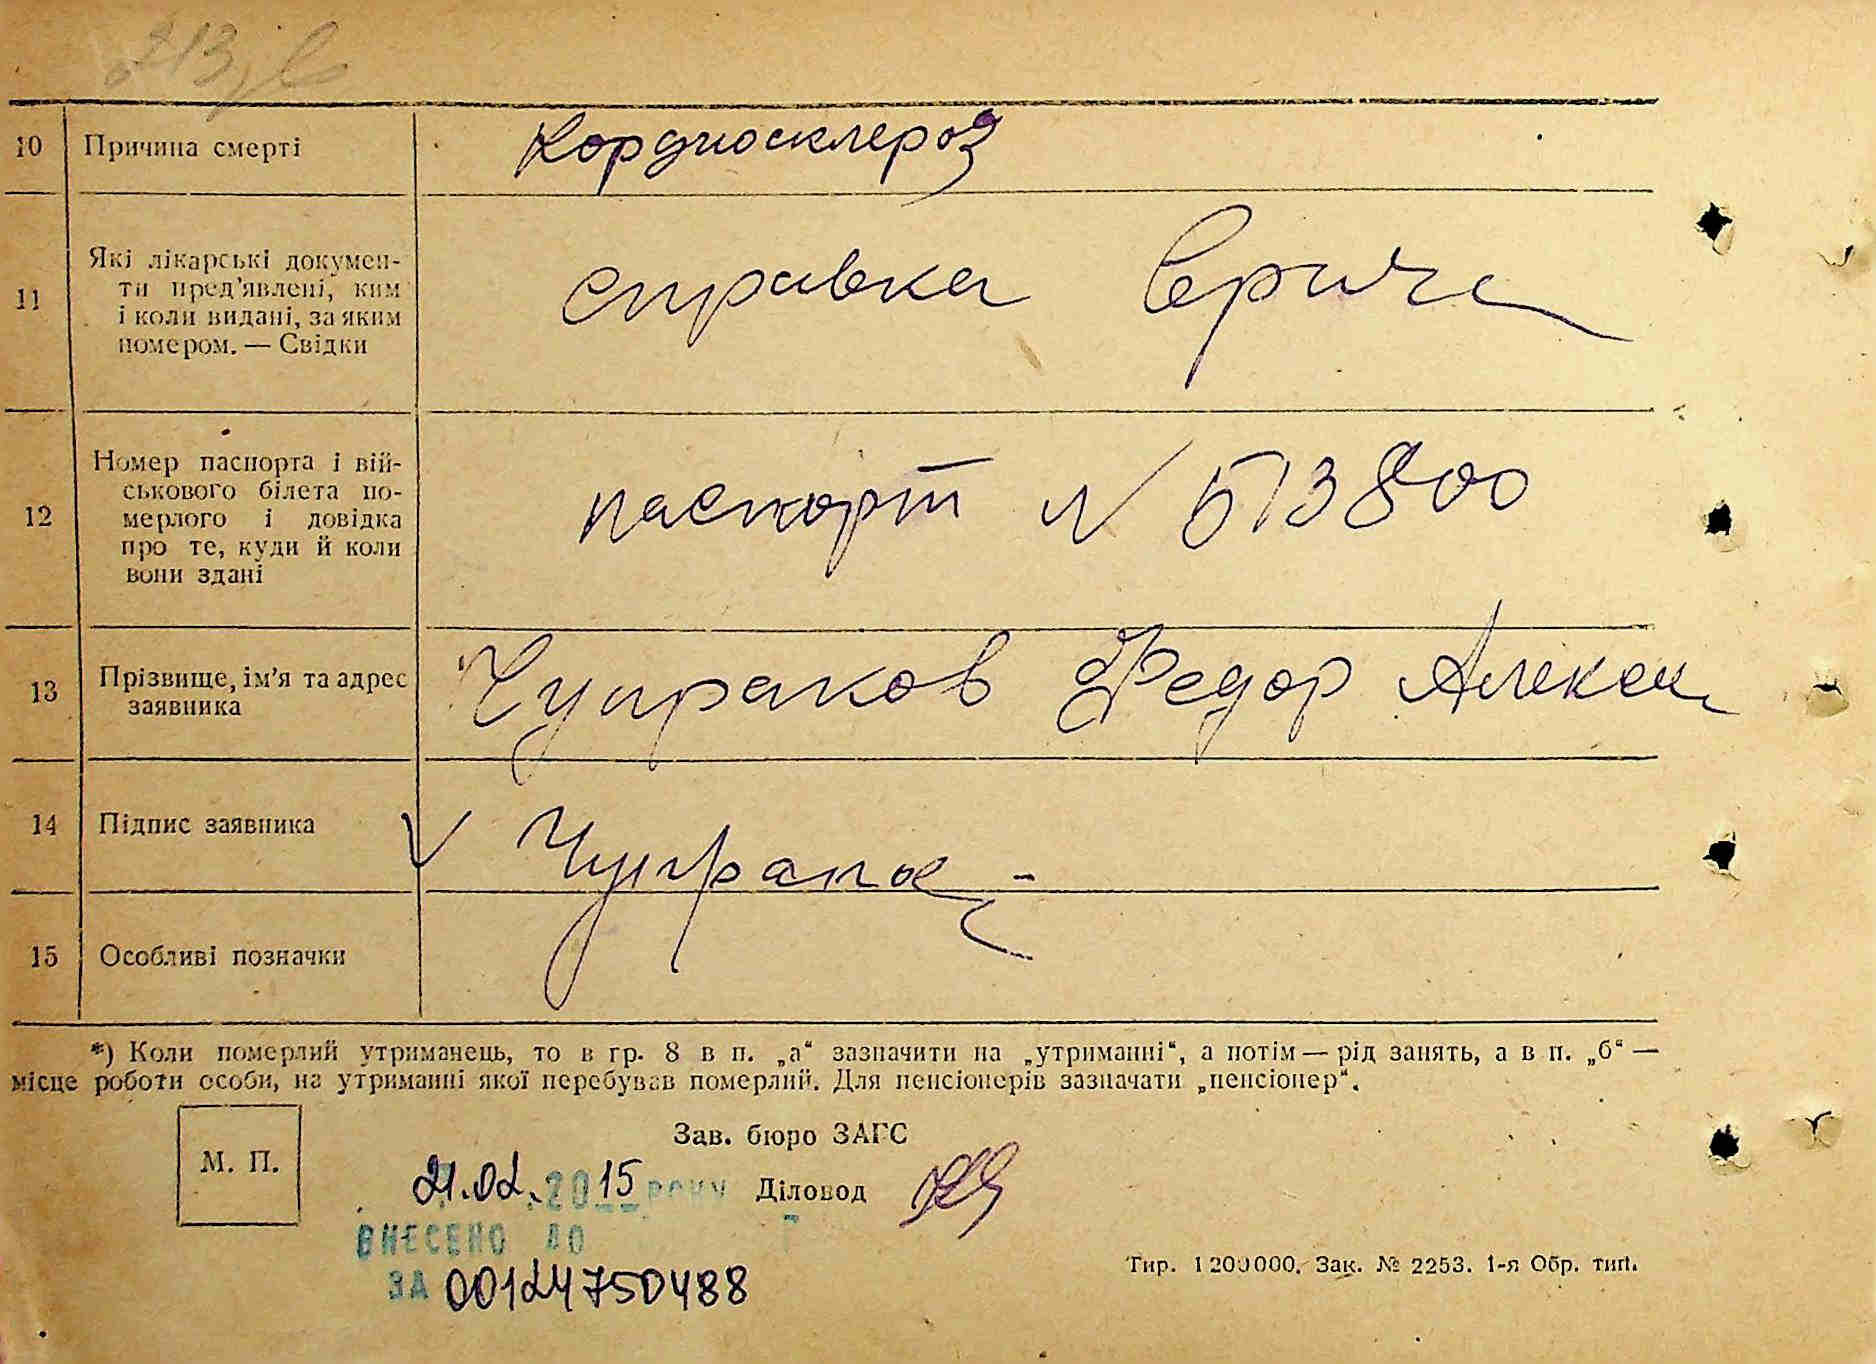 213
10 Причина смерті Кордиосклероз
11 Які лікарські докумен-
ти пред’явлені, ким
і коли видані, за яким
номером. — Свідки
справка врача
12 Номер паспорта і вій-
ськового білета по-
мерлого і довідка
про те, куди й коли
вони здані
паспорт № 513800
13 Прізвище, ім’я та адрес
заявника
Чупраков Федор Алекс
14 Підпис заявника
15 Особливі позначки
*) Коли померлий утриманець, то в гр. 8 в п. „а“ зазначити на „утриманні“, а потім — рід занять, а в п. „б“ —
місце роботи особи, на утриманні якої перебував померлий. Для пенсіонерів зазначати „пенсіонер“.
Зав. бюро ЗАГС
М. П.
21.02.2015 РОКУ Діловод
ВНЕСЕНО ДО
ЗА 00124750488
Тир. 1200000. Зак. № 2253. 1-я Обр. тип.